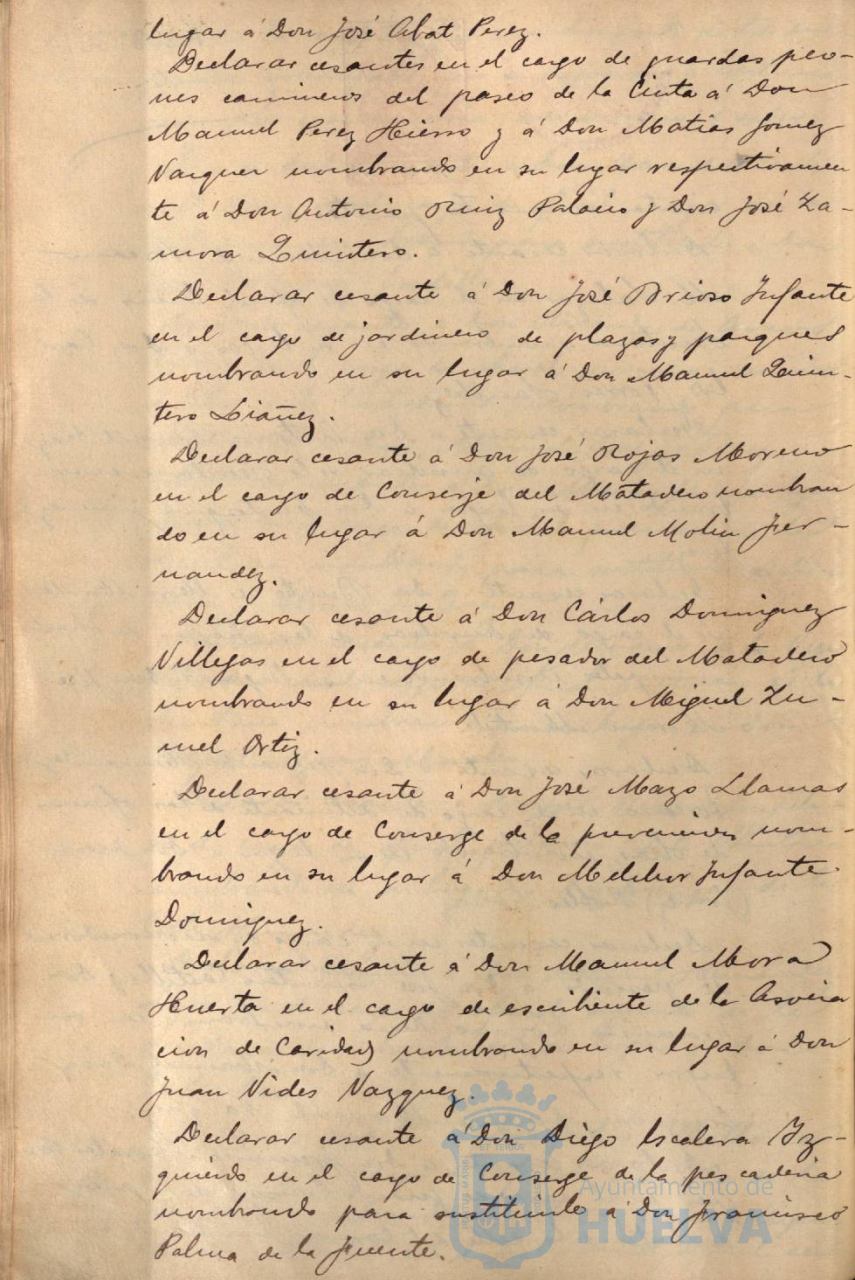 lugar á Don José Abat Perez.
Declarar cesantes en el cargo de guardas peo-
nes camineros del paseo de la Cinta á Don
Manuel Perez Hierro y á Don Matias Gomez
Vazquez nombrando en su lugar respectivamen
te á Don Antonio Ruiz Palacio y Don José Za-
mora Quintero.
Declarar cesante á Don José Brioso Infante
en el cargo de jardinero de plazas y parques
nombrando en su lugar á Don Manuel Quin-
tero Liañez.
Declarar cesante á Don José Rojas Moreno
en el cargo de Conserje del Matadero nombran
do en su lugar á Don Manuel Molin Fer-
nandez.
Declarar cesante á Don Cárlos Dominguez
Villegas en el cargo de pesador del Matadero
nombrando en su lugar á Don Miguel Zu-
mel Ortiz.
Declarar cesante á Don José Mazo Llamas
en el cargo de Conserge de la prevencion nom-
brando en su lugar á Don Melchor Infante
Dominguez.
Declarar cesante á Don Manuel Mora
Huerta en el cargo de escribiente de la Asocia
cion de Caridad nombrando en su lugar á Don
Juan Vides Vazquez.
Declarar cesante á Don Diego Escalera Iz-
quierdo en el cargo de Conserge de la pescaderia
nombrando para sustituirle á Don Francisco
Palma de la Fuente.
Ayuntamiento de
HUELVA